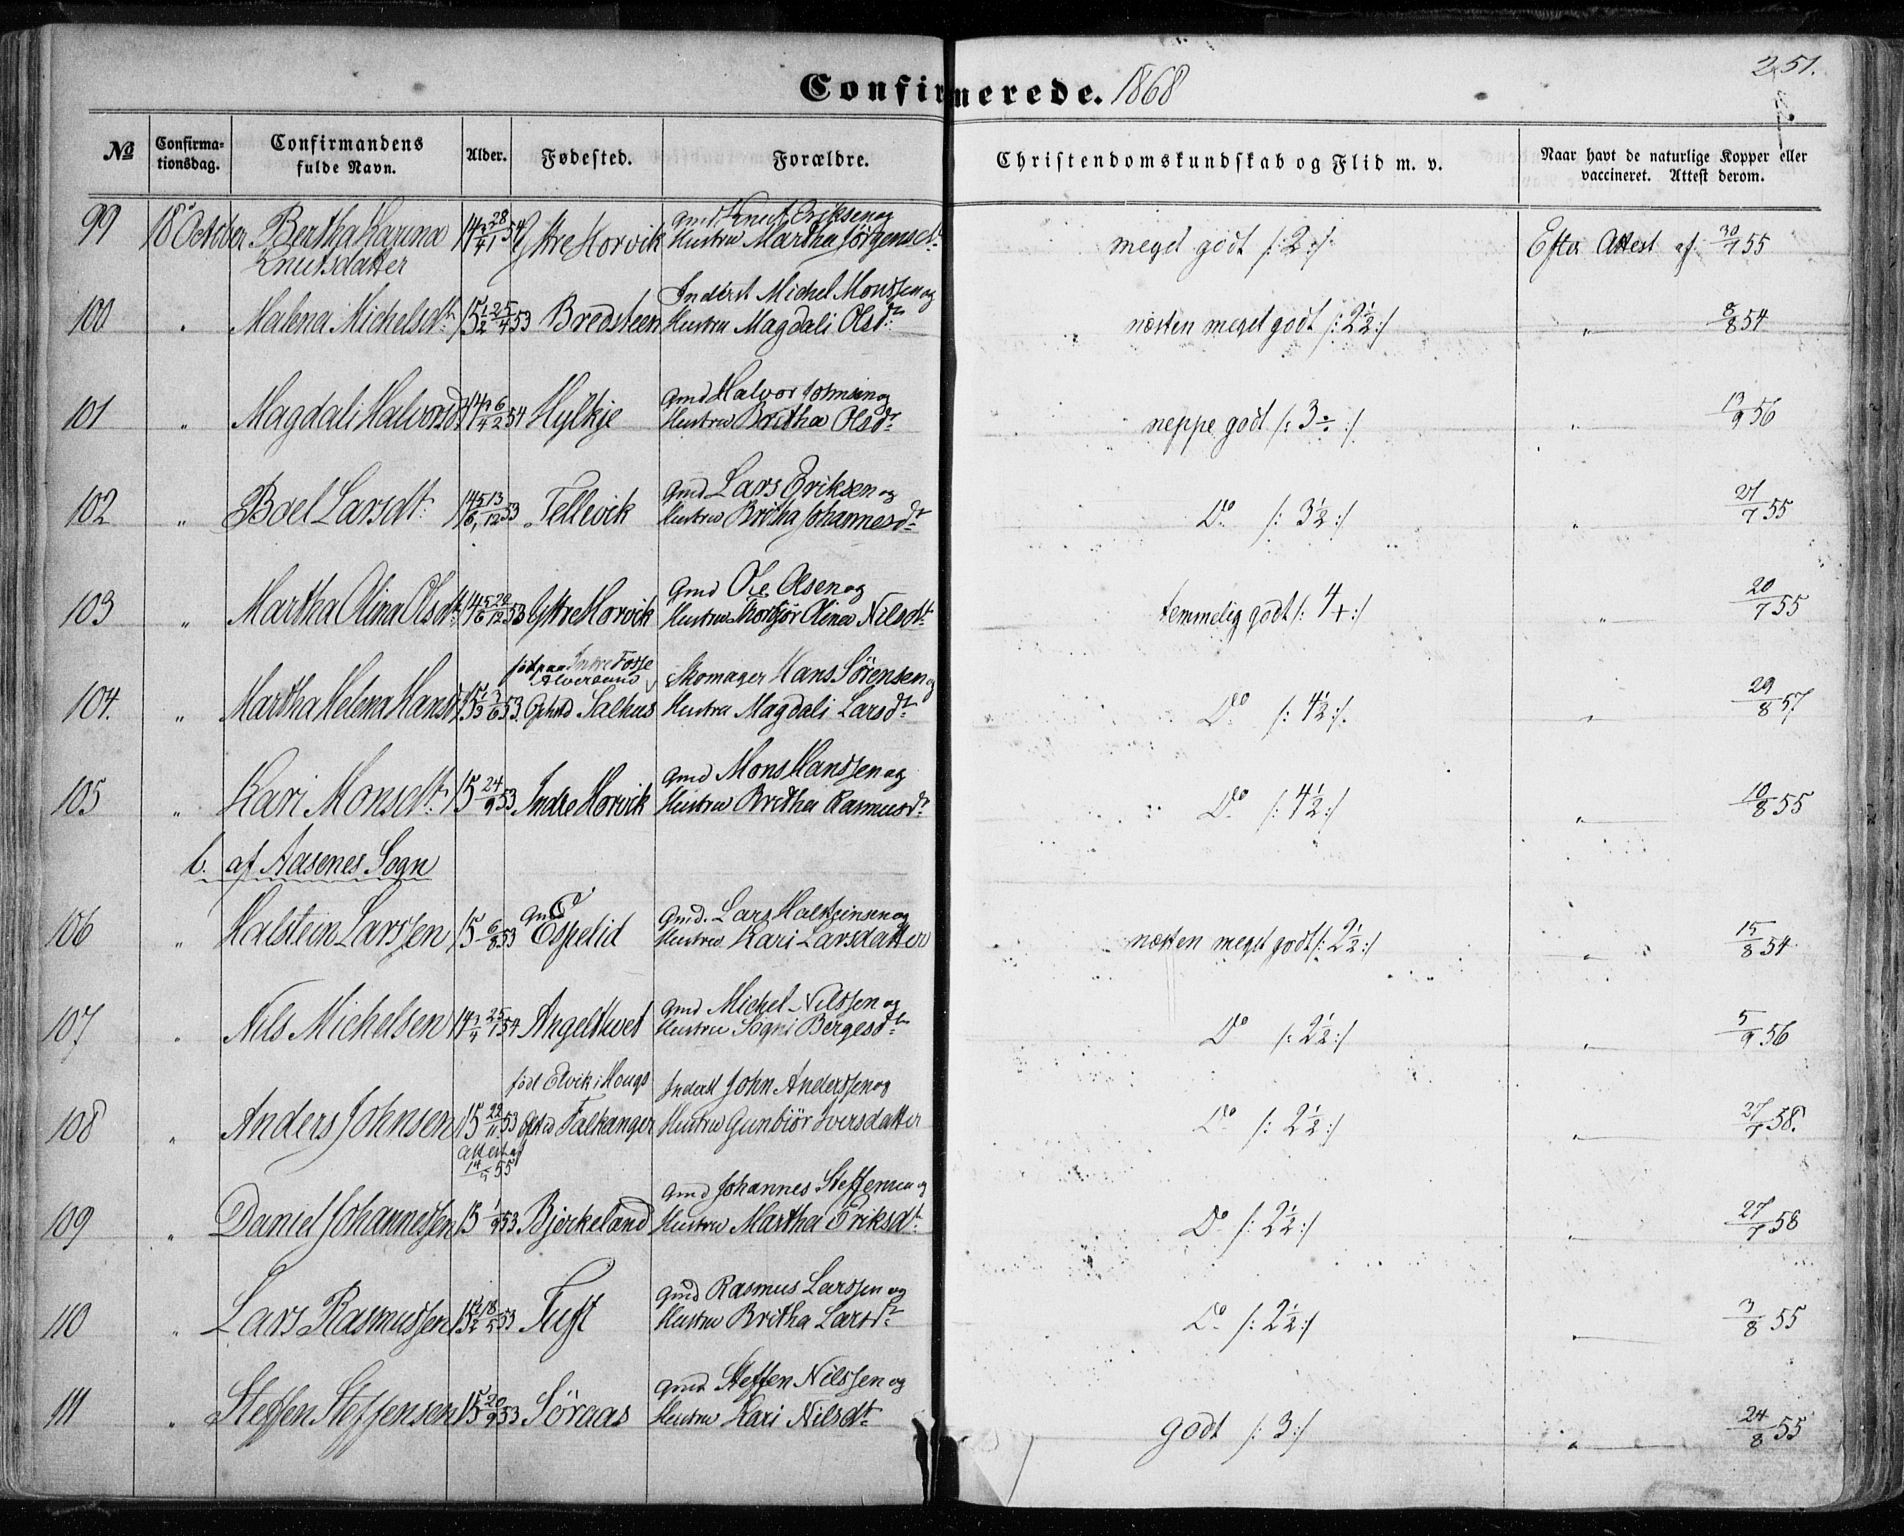 251.
Confirmerede. 1868
No Confirmationsdag. Confirmandens fulde Navn. Alder. Fødested. Forældre. Christendomskundskab og Flid m. v. Naar havt de naturlige Kopper eller vaccineret. Attest derom.
99 18 October Bertha Karina 28 54 Ytre Morvik Gmd Knut Eriksen og
Knutsdatter Hustru Martha Jörgensdr meget godt /:2:/ Efter Attest af 30/7 55
100 " Malena Michelsdt 15 1/2 25/4 53 Bredsteen Inderst Michel Monssen og
Hustru Magdali Olsdr næsten meget godt /:2 1/2:/ " 8/8 54
101 " Magdali Halvorsd 14 6/2 54 Hylkje Gmd Halvor Johnsen og
Hustru Britha Olsdr neppe godt /:3÷:/ " 13/9 56
102 " Boel Larsdt 14 5/6 13/12 53 Tellevik Gmd Lars Eriksen og
Hustru Britha Johannesdr Do /:3 1/2:/ " 27/7 55
103 " Martha Olina Olsdt 14 5/6 12 53 Ytre Morvik Gmd Ole Olsen og
Hustru Olina Nilsdt temmelig godt /:4+:/ " 20/7 55
født paa Indre Fosse
Alversund
104. " Martha Helena Hansd 15 1/3 3/6 53. Ophold Salhus Skomager Hans Sörensen og
Hustru Magdali Larsdr Do /:4 1/2:/ " 29/8 57
105 " Kari Monsdt 15 24/9 53 Indre Morvik Gmd Mons Hanssen og
Hustru Britha Rasmusdr Do /:4 1/2:/ " 10/8 55
b. af Aasenes Sogn
106 " Halstein Larssen 15 6/8 53 Espelid Gmd. Lars Halsteinsen og
Hustru Kari Larsdatter næsten meget godt /:2 1/2:/ " 15/8 54
107 " Nils Michelsen 14 3/4 25/1 54 Angeltvet Gmd Michel Nilssen og
Hustru Sogni Bergesdt Do /:2 1/2:/ " 5/9 56
født Elvik i Hougs
108 " Anders Johnsen 15 22/11 53 Ophold Falkanger Inderst John Anderssen og
Hustru Gunbiör Iversdatter Do /:2 1/2:/ " 27/7 58.
Attest af
14/5 55
109 " Daniel Johannessen 15 1/9 53 Bjerkeland Gmd Johannes Steffensen og
Hustru Martha Eriksdt Do /:2 1/2:/ " 27/7 58
110 " Lars Rasmussen 15 1/2 18/5 53 Tuft Gmd Rasmus Larssen og
Hustru Britha Larsdr Do /:2 1/2:/ " 3/8 55
111 " Steffen Steffensen 15 20/9 53 Söraas Gmd Steffen Nilssen og
Hustru Kari Nilsdt godt /:3:/ " 24/8 55